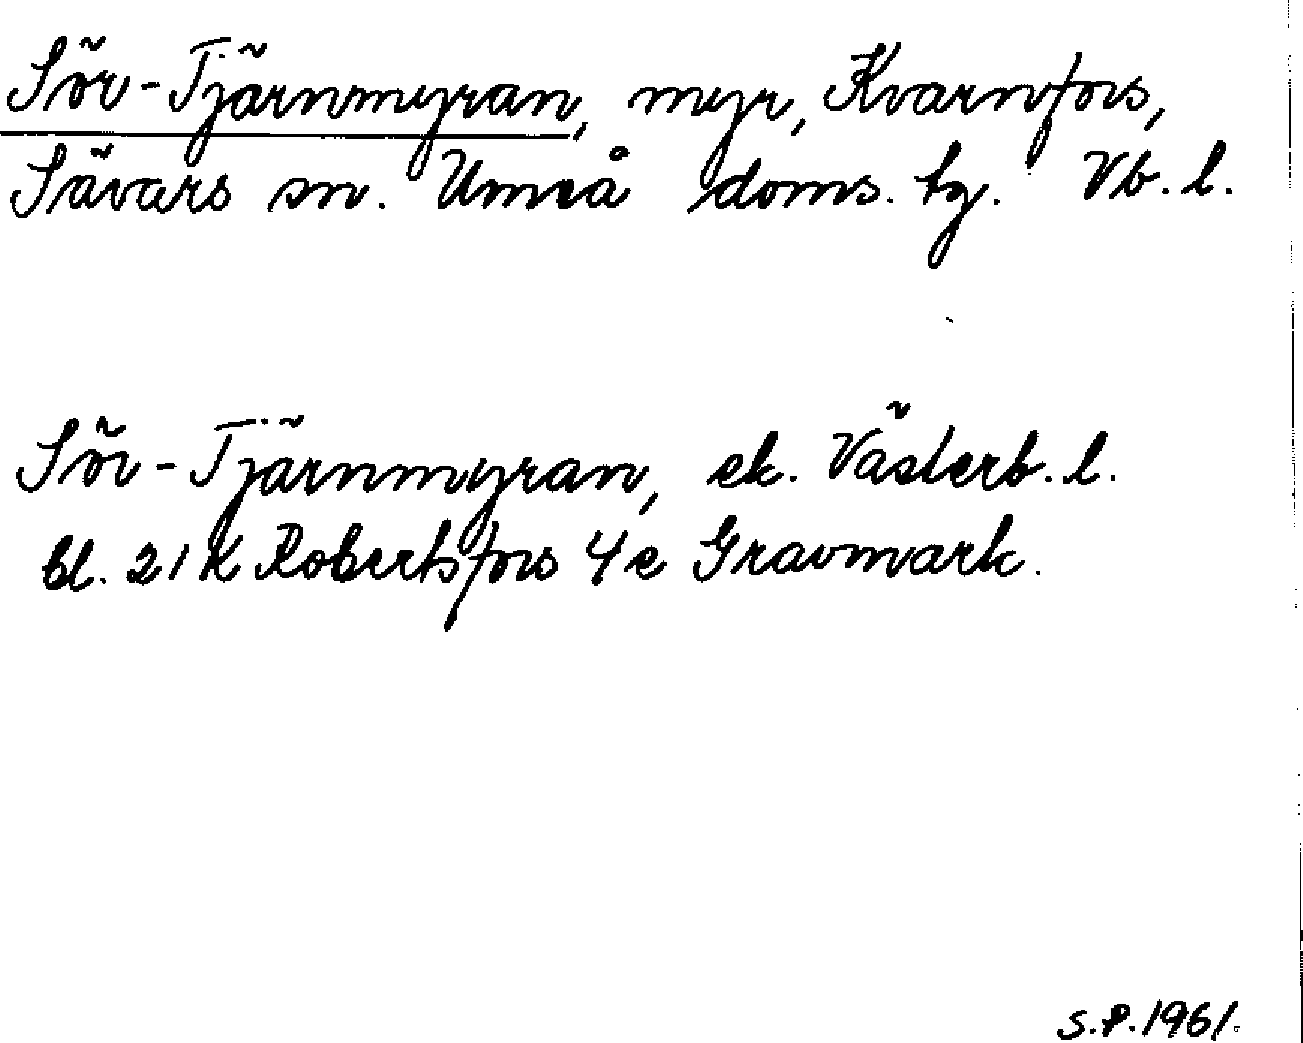 Sör-Tjärnmyran, myr, Kvarnfors,
Sävars sn. Umeå doms. tg. Vb. l.
Sör-Tjärnmyran, ek. Västerb. l.
bl. 21 K Robertsfors 4e Gravmark.
S.P. 1961.